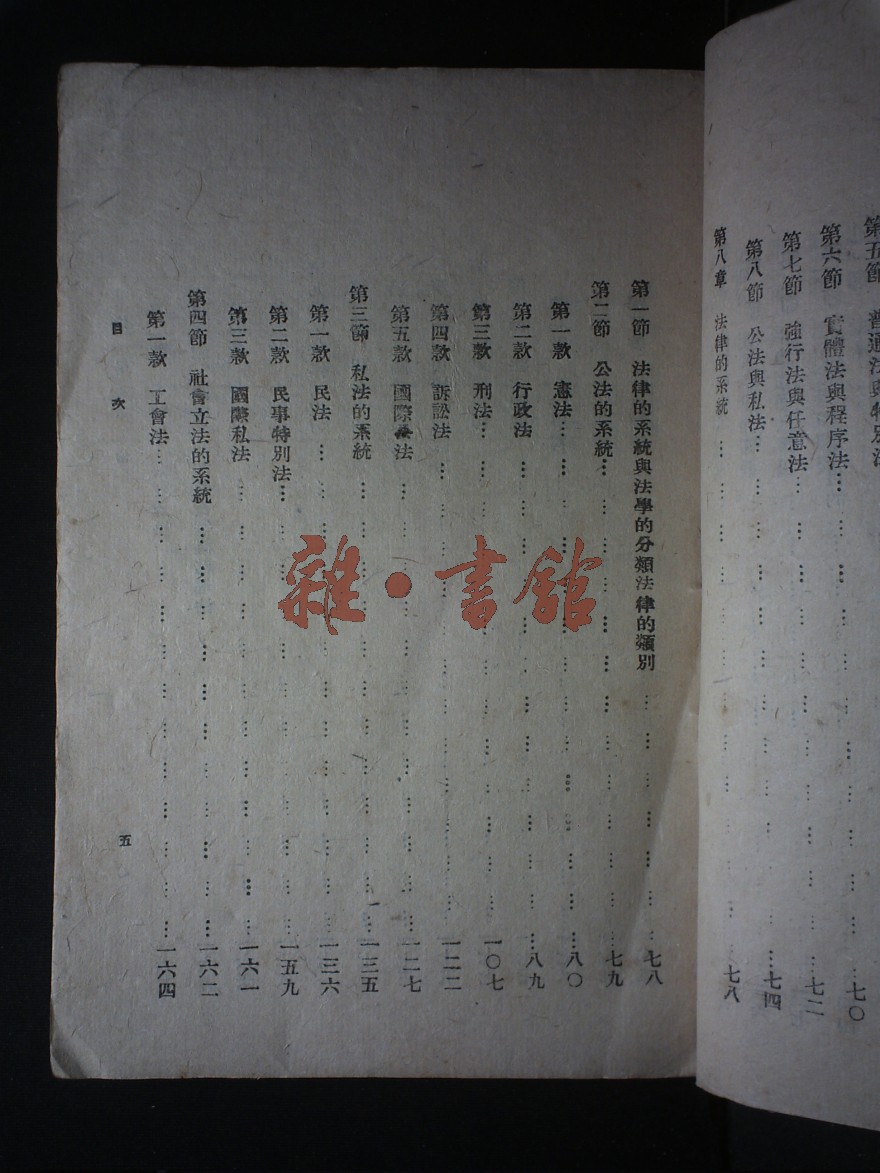 第六節　實體法與程序法…………七〇
第七節　強行法與任意法…………七二
第八節　公法與私法…………七四
第八章　法律的系統…………七八
第一節　法律的系統與法學的分類法律的類別…………七八
第二節　公法的系統…………七九
第一款　憲法…………八〇
第二款　行政法…………八九
第三款　刑法…………一〇七
第四款　訴訟法…………一二二
第五款　國際公法…………一二七
第三節　私法的系統…………一三五
第一款　民法…………一三六
第二款　民事特別法…………一五九
第三款　國際私法…………一六一
第四節　社會立法的系統…………一六二
第一款　工會法…………一六四
目次
五
雜·書館